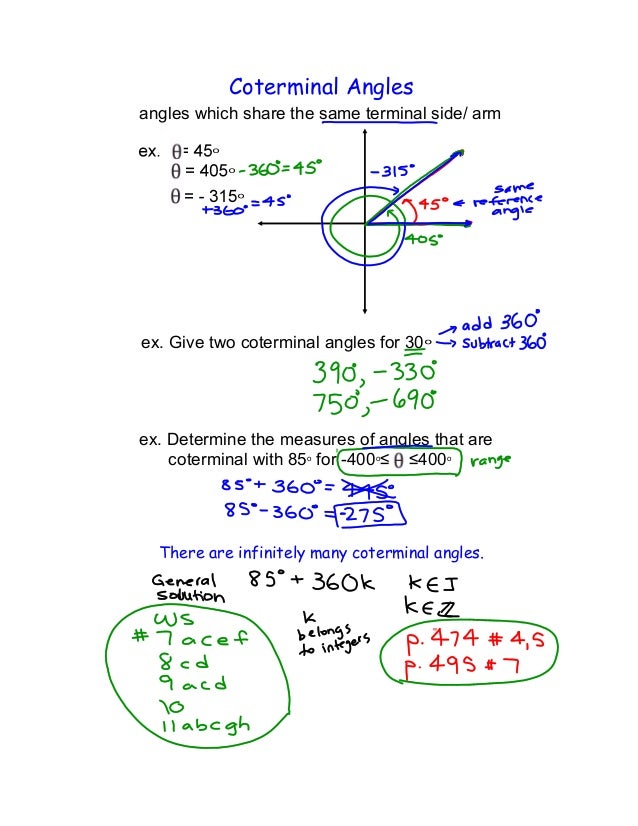 Coterminal Angles
angles which share the same terminal side/ arm
ex. θ = 45°
θ = 405° - 360° = 45°
θ = - 315°
+360° = 45°
-315°
45° ← same reference angle
405°
ex. Give two coterminal angles for 30°
→ add 360°
→ subtract 360°
390°, -330°
750°, -690°
ex. Determine the measures of angles that are
coterminal with 85° for -400° ≤ θ ≤ 400° range
85° + 360° = 445°
85° - 360° = -275°
There are infinitely many coterminal angles.
General solution 85° + 360k k∈I
k∈ℤ
k belongs to integers
WS
# 7 a c e f
8 c d
9 a c d
10
11 a b c g h
p. 474 # 4,5
p. 495 # 7